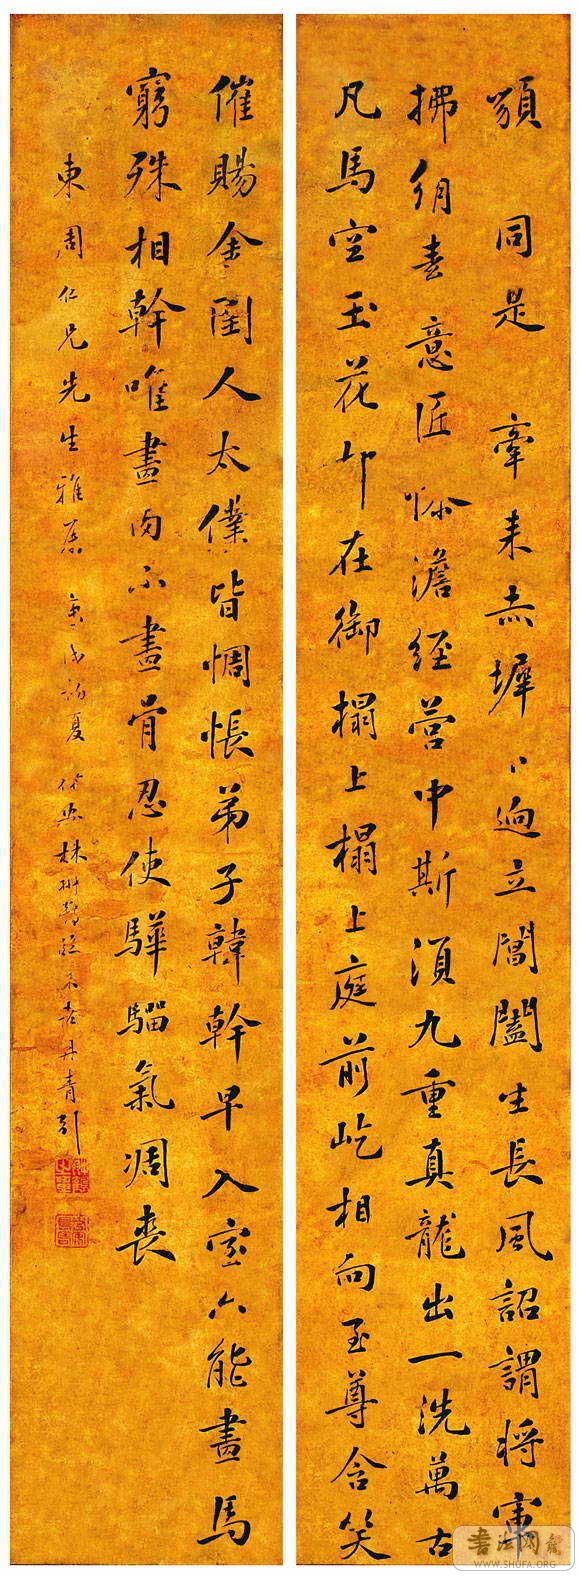 䫉同是牽来赤墀下迥立閶闔生長風詔謂将軍
拂絹素意匠慘澹經營中斯須九重真龍出一洗萬古
凡馬空玉花却在御榻上榻上庭前屹相向至尊含笑
催賜金圉人太僕皆惆悵弟子韓幹早入室亦能畫馬
窮殊相幹唯畫肉不畫骨忍使驊騮氣凋喪
東周仁兄先生雅屬 庚戌初夏 丹青引
书法网
WWW.SHUFA.ORG